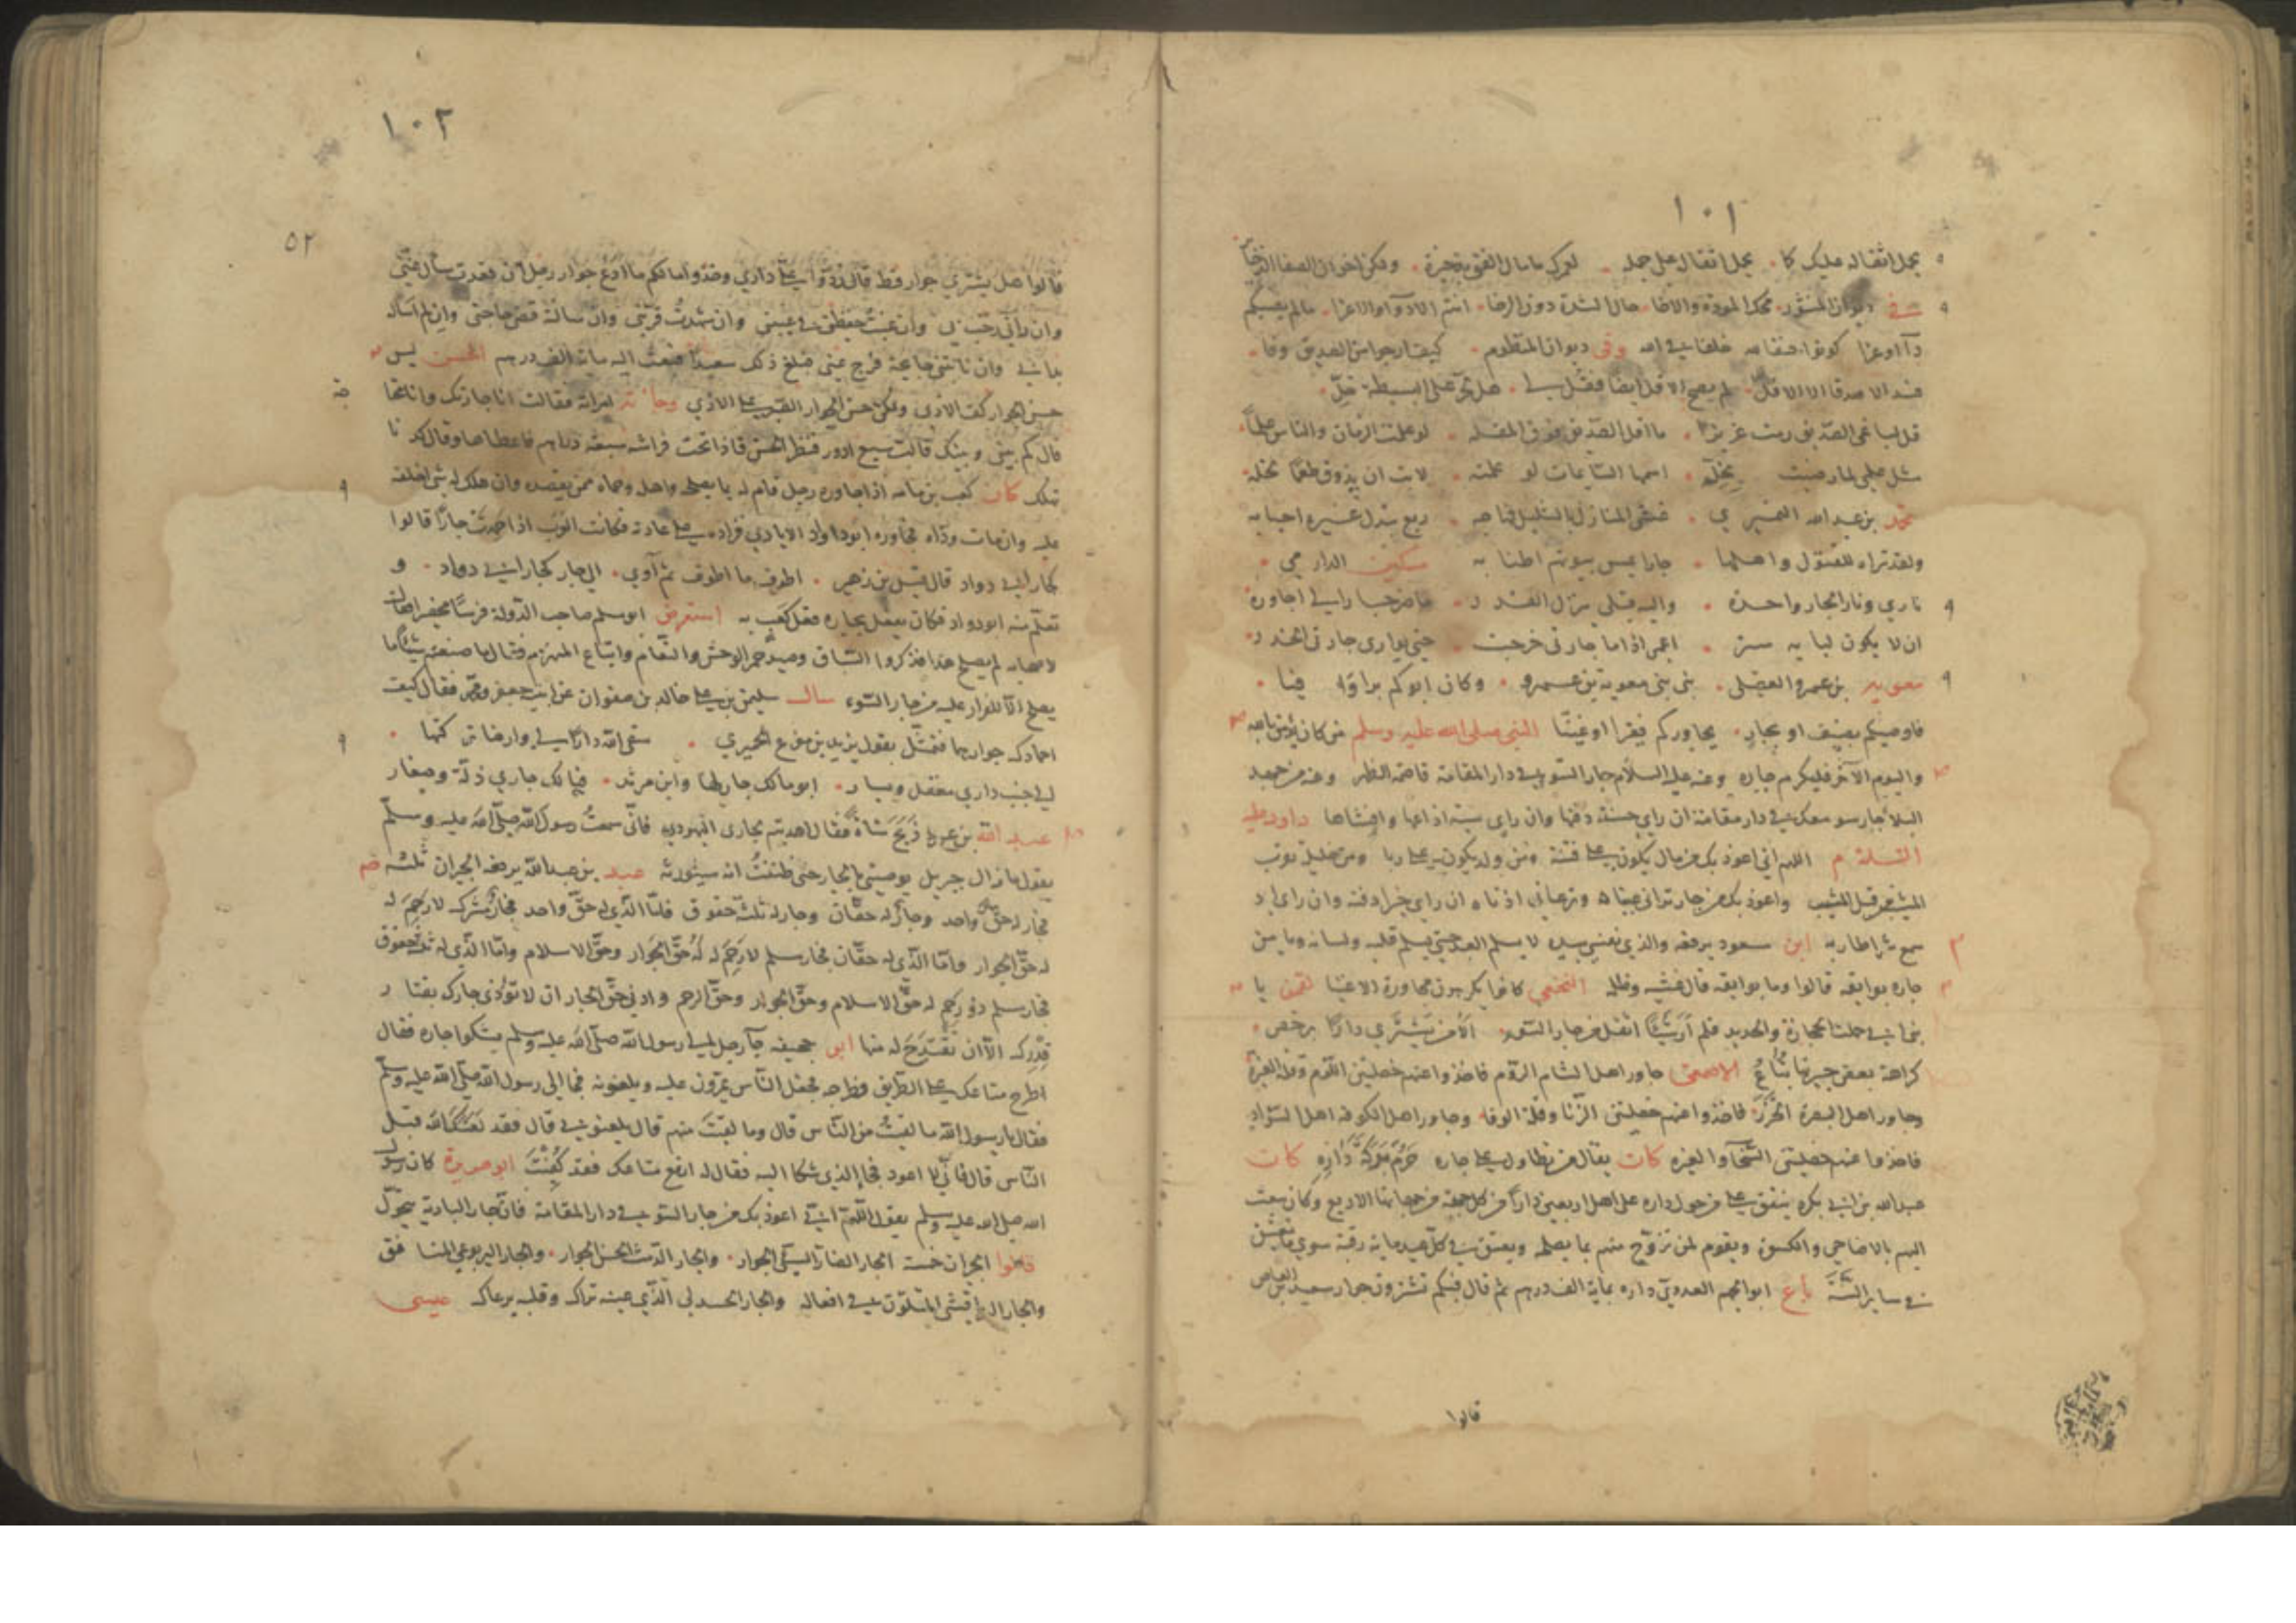 ١٠١
يحمل اثقاله عليك كما يحمل اثقاله على جمله لعمرك ما مال الفتى بذخيرة ولكن اخوان الصفا الذخائر
في ديوان المنثور محك المودة والاخا حال الشدة دون الرخا انتم الاودآء والاعزا ما لم يصبكم
وفي ديوان المنظوم كيف ارجو من الصديق وفا
هل ترى على البسيطة خل
قل لباغي الصديق رمت عزيزا ما اقل الصديق
لو علمت الزمان والناس علما
محمد بن عبد الله النميري
ولقد تراه للقتول واهلها جارا يمس بيوتهم اطنابه مسكين الدارمي
ناري ونار الجار واحدة واليه قبلي ينزل القدر ما ضر جارا لي اجاوره
ان لا يكون لبابه ستر اعمى اذا ما جارتي خرجت حتى يواري جارتي الخدر
معوية بن عمرو العقيلي بني بني معوية بن عمرو وكان ابوكم برا وفينا
فاوصيكم بضيف او بجار يجاوركم فقيرا او غنيا النبي صلى الله عليه وسلم من كان يؤمن بالله
واليوم الآخر فليكرم جاره وعنه عليه السلام جار السوء في دار المقامة قاصمة الظهر وعنه من جهد
البلاء جار سوء معك في دار مقامة ان راى حسنة دفنها وان راى سيئة اذاعها وافشاها داود عليه
السلام اللهم اني اعوذ بك من مال يكون علي فتنة ومن ولد يكون علي ربا ومن حليلة تقرب
المشيب قبل المشيب واعوذ بك من جار تراني عيناه وترعاني اذناه ان راى خيرا دفنه وان راى او
سمع شرا طار به ابن مسعود يرفعه والذي نفسي بيده لا يسلم العبد حتى يسلم قلبه ولسانه ويامن
جاره بوايقه قالوا وما بوايقه قال غشه وظلمه النخعي كانوا يكرهون مجاورة الاغنيا لقمن يا
بني اني حملت الحجارة والحديد فلم ار شيئا اثقل من جار السوء الا من يشتري دارا برخص
كراهة بعض جيرتها تباع الاصمعي جاور اهل الشام الروم فاخذوا عنهم خصلتين اللؤم وقلة الغيرة
وجاور اهل البصرة الخزر فاخذوا عنهم خصلتين الزنا وقلة الوفا وجاور اهل الكوفة اهل السواد
فاخذوا عنهم خصلتين السخآ والغيره كان يقال من تطاول على جاره حرم بركة داره كان
عبد الله بن ابي بكره ينفق على من حول داره على اهل اربعين دارا من كل جهة من جهاتها الاربع وكان يبعث
اليهم بالاضاحي والكسوة ويقوم لمن تزوج منهم بما يصلحه ويعتق في كل عيد ماية رقبة سوى ما يعتق
في ساير السنة باع ابو الجهم العدوي داره بماية الف درهم ثم قال فبكم تشترون جوار سعيد بن العاص
قالوا
١٠٢
٥٢
قالوا وهل يشترى جوار قط قال ردوا علي داري وخذوا مالكم ما ادع جوار رجل ان فقدت سأل عني
وان رآني رحب بي وان غبت حفظني في غيبتي وان شهدت قربني وان سألته قضى حاجتي وان لم اسأله
بداني وان نابتني جايحة فرج عني فبلغ ذلك سعيدا فبعث اليه ماية الف درهم الحسن ليس
حسن الجوار كف الاذى ولكن حسن الجوار الصبر على الاذى وجاءته امراة فقالت انا جارتك
قال كم بيني وبينك قالت سبع ادور فنظر الحسن فاذا تحت فراشه سبعة دراهم فاعطاها وقال كدنا
نهلك كان كعب بن مامه اذا جاوره رجل قام له بما يصلحه واهله وحماه ممن يقصده وان هلك له شي اخلفه
عليه وان مات وداه فجاوره ابو دواد الايادي فزاده على عادته فكانت العرب اذا احمدت جارا قالوا
كجار ابي دواد قال قيس بن زهير اطوف ما اطوف ثم آوي الى جار كجار ابي دواد و
تعلم منه ابو دواد فكان يفعل بجاره فعل كعب به استعرض ابو مسلم صاحب الدولة فرسا محضرا فقال
لاصحابه لم يصلح هذا فذكروا السباق وصيد حمر الوحش والنعام واتباع المنهزم فقال ما صنعتم شيئا ما
يصلح الا للفرار عليه من جار السوء سال سليمن بن علي خالد بن صفوان عن ابنيه جعفر ومحمد فقال كيف
احمادك جوارهما فتمثل بقول يزيد بن مفرغ الحميري سقى الله دارا لي وارضا تركتها
الى جنب داري معقل ويسار ابو مالك جار لها وابن مرثد فيا لك جاري ذلة وصغار
عبد الله بن عمر ذبح شاة فقال اهديتم لجاري اليهودي فاني سمعت رسول الله صلى الله عليه وسلم
يقول ما زال جبريل يوصيني بالجار حتى ظننت انه سيورثه جابر بن عبد الله يرفعه الجيران ثلثه
فجار له حق واحد وجار له حقان وجار له ثلثة حقوق فاما الذي له حق واحد فجار مشرك لا رحم له
له حق الجوار واما الذي له حقان فجار مسلم لا رحم له له حق الجوار وحق الاسلام واما الذي له ثلثة حقوق
فجار مسلم ذو رحم له حق الاسلام وحق الجوار وحق الرحم وادنى حق الجار ان لا تؤذي جارك بقتار
قدرك الا ان تقتدح له منها ابو جحيفه جآ رجل الى رسول الله صلى الله عليه وسلم يشكو جاره فقال
اطرح متاعك على الطريق فطرحه فجعل الناس يمرون عليه ويلعنونه فجا الى رسول الله صلى الله عليه وسلم
فقال يا رسول الله ما لقيت من الناس قال وما لقيت منهم قال يلعنوني قال فقد لعنك الله قبل
الناس قال فاني لا اعود فجا الذي شكا اليه فقال له ارفع متاعك فقد كفيت ابو هريرة كان رسول
الله صلى الله عليه وسلم يقول اللهم اني اعوذ بك من جار السوء في دار المقامة فان جار البادية يتحول
قالوا الجيران خمسة الجار الضار السيئ الجوار والجار الدمث الحسن الجوار والجار اليربوعي المنافق
والجار البراقشي المتلون في افعاله والجار الحسدلي الذي عينه تراك وقلبه يرعاك عيسى